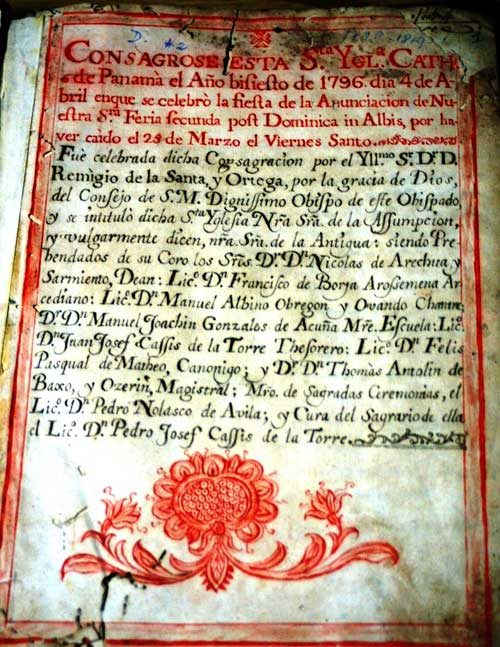 D. #2
CONSAGROSE ESTA S.ta YGL.a CATH.l
de Panamà el Año bisiesto de 1796. dia 4 de A-
bril enque se celebrò la fiesta de la Anunciacion de Nu-
estra S.ra Feria secunda post Dominica in Albis, por ha-
ver caido el 25 de Marzo el Viernes Santo.
Fuè celebrada dicha Consagracion por el Yll.mo S.r D.r D.
Remigio de la Santa, y Ortega, por la gracia de Dios,
del Consejo de S.M. Dignissimo Obispo de este Obispado,
y se intitulò dicha S.ta Yglesia Nrã Srã. de la Assumpcion,
y vulgarmente dicen, nrã Srã. de la Antigua: siendo Pre-
bendados de su Coro los Srẽs. D.r D.n Nicolas de Arechua, y
Sarmiento, Dean: Lic. D.n Francisco de Borja Arosemena Ar-
cediano: Lic. D.n Manuel Albino Obregon y Ovando Chantre,
D.r D.n Manuel Joachin Gonzalos de Acuña Mrẽ. Escuela: Lic.
D.n Juan Josef Cassis de la Torre Thesorero: Lic. D.n Felis
Pasqual de Matheo, Canonigo; y D.r D.n Thomàs Antolin de
Baxo, y Ozerin, Magistral; Mro. de Sagradas Ceremonias, el
Lic. D.n Pedro Nolasco de Avila; y Cura del Sagrario de ella
el Lic. D.n Pedro Josef Cassis de la Torre.